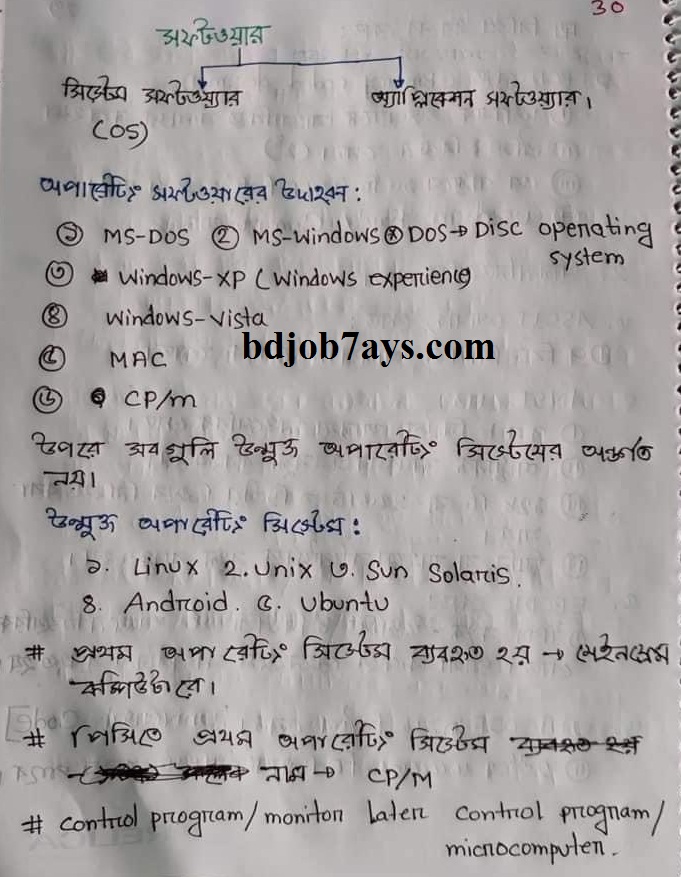 30
সফটওয়্যার
সিস্টেম সফটওয়্যার অ্যাপ্লিকেশন সফটওয়্যার।
(OS)
অপারেটিং সফটওয়্যারের উদাহরন:
① MS-DOS ② MS-Windows ⊛ DOS→ Disc operating
system
③ Windows-XP (Windows experience)
④ Windows-Vista
⑤ MAC
bdjob7ays.com
⑥ CP/m
উপরে সবগুলি উন্মুক্ত অপারেটিং সিস্টেমের অন্তর্গত
নয়।
উন্মুক্ত অপারেটিং সিস্টেম:
১. Linux 2. Unix ৩. Sun Solaris.
৪. Android. ৫. Ubuntu
# প্রথম অপারেটিং সিস্টেম ব্যবহৃত হয় → মেইনফ্রেম
কম্পিউটারে।
# পিসিতে প্রথম অপারেটিং সিস্টেম ব্যবহৃত হয়
নাম → CP/M
# control program/monitor later control program/
microcomputer.